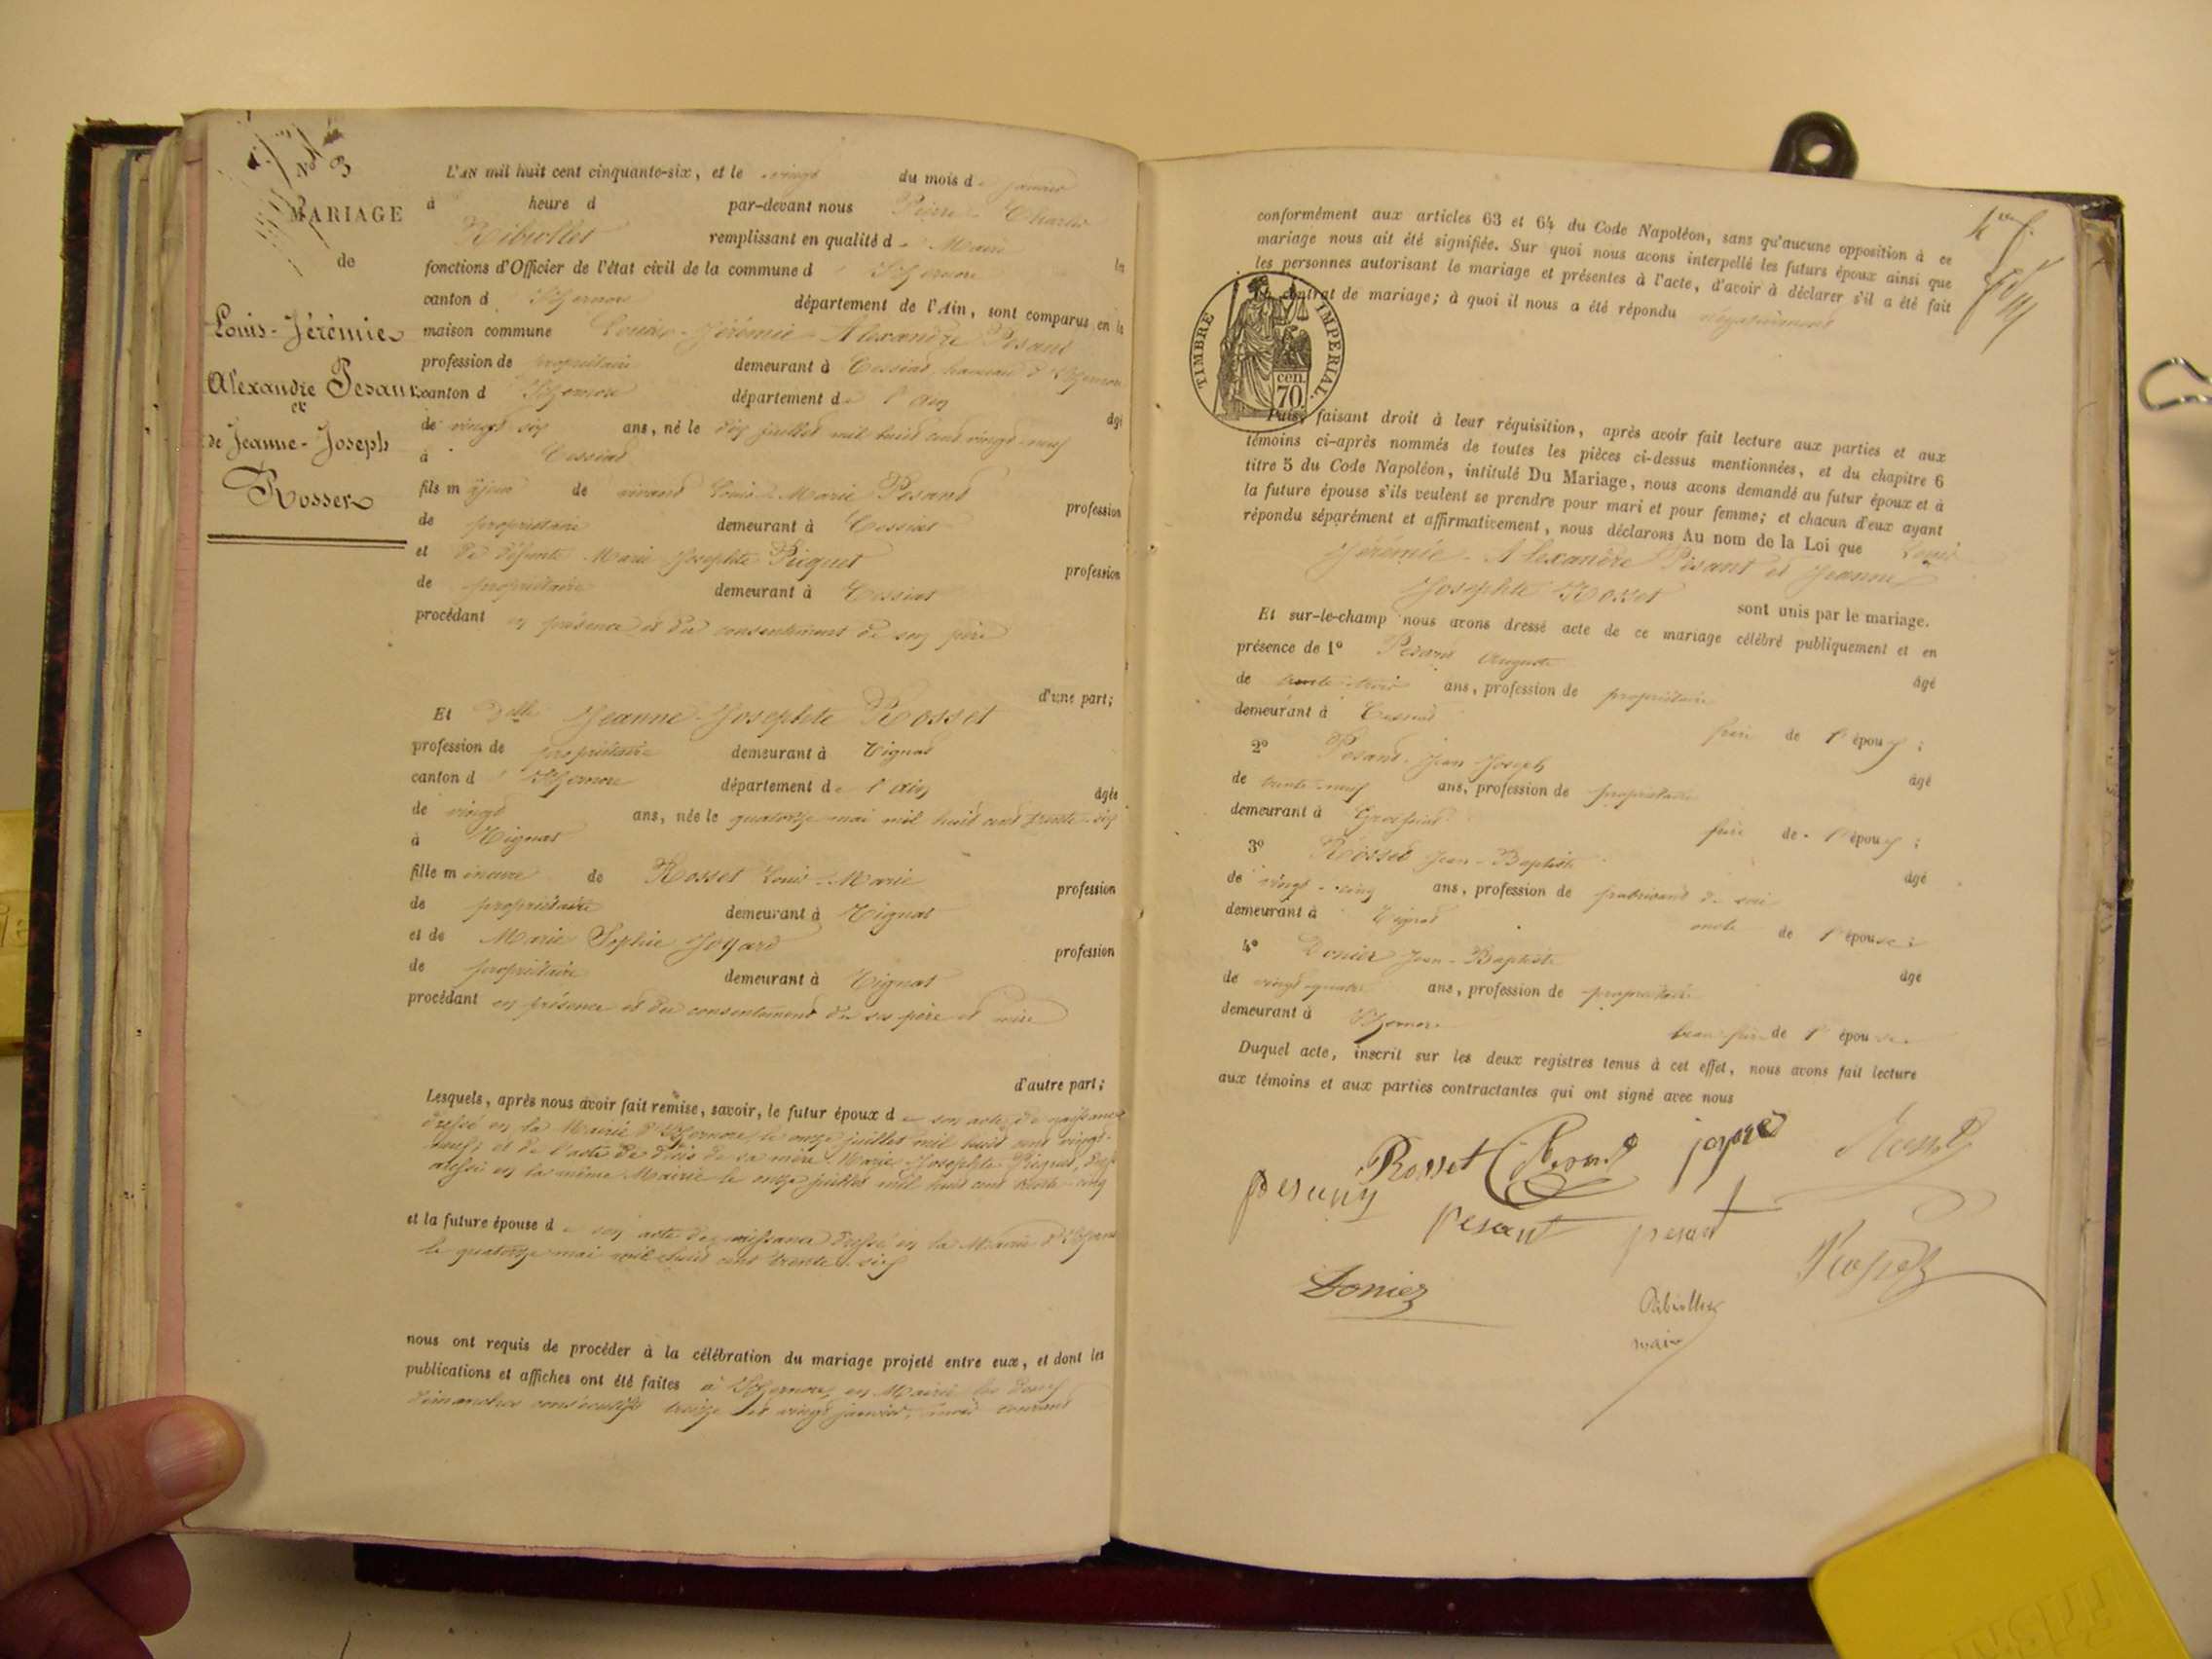 No 3
MARIAGE
de
Louis-Jérémie
Alexandre Pesant
et
de Jeanne-Joseph
Rosset
L'AN mil huit cent cinquante-six, et le vingt du mois de janvier
à heure d par-devant nous Pierre Charles
Ribiollet remplissant en qualité de Maire les
fonctions d'Officier de l'état civil de la commune d'Izernore
canton d'Izernore département de l'Ain, sont comparus en la
maison commune Louis-Jérémie-Alexandre Pesant
profession de propriétaire demeurant à Cessiat hameau d'Izernore
canton d'Izernore département de l'Ain âgé
de vingt six ans, né le dix juillet mil huit cent vingt-neuf
à Cessiat
fils majeur de vivant Louis-Marie Pesant profession
de propriétaire demeurant à Cessiat
et de défunte Marie Josephte Picquet profession
de propriétaire demeurant à Cessiat
procédant en présence et du consentement de son père
d'une part;
Et Delle Jeanne-Josephte Rosset
profession de propriétaire demeurant à Tignat
canton d'Izernore département de l'Ain âgée
de vingt ans, née le quatorze mai mil huit cent trente-six
à Tignat
fille mineure de Rosset Louis-Marie profession
de propriétaire demeurant à Tignat
et de Marie Sophie Joyard profession
de propriétaire demeurant à Tignat
procédant en présence et du consentement de ses père et mère
d'autre part;
Lesquels, après nous avoir fait remise, savoir, le futur époux de son acte de naissance
dressé en la Mairie d'Izernore, le onze juillet mil huit cent vingt-
neuf; et de l'acte de décès de sa mère Marie Josephte Picquet,
dressé en la même Mairie le onze juillet mil huit cent trente-cinq
et la future épouse de son acte de naissance dressé en la Mairie d'Izernore
le quatorze mai mil huit cent trente-six
nous ont requis de procéder à la célébration du mariage projeté entre eux, et dont les
publications et affiches ont été faites à Izernore, en Mairie les deux
dimanches consécutifs treize et vingt janvier, mois courant
conformément aux articles 63 et 64 du Code Napoléon, sans qu'aucune opposition à ce
mariage nous ait été signifiée. Sur quoi nous avons interpellé les futurs époux ainsi que
les personnes autorisant le mariage et présentes à l'acte, d'avoir à déclarer s'il a été fait
un contrat de mariage; à quoi il nous a été répondu négativement
TIMBRE IMPERIAL
cen.
70.
Puis, faisant droit à leur réquisition, après avoir fait lecture aux parties et aux
témoins ci-après nommés de toutes les pièces ci-dessus mentionnées, et du chapitre 6
titre 5 du Code Napoléon, intitulé Du Mariage, nous avons demandé au futur époux et à
la future épouse s'ils veulent se prendre pour mari et pour femme; et chacun d'eux ayant
répondu séparément et affirmativement, nous déclarons Au nom de la Loi que Louis
Jérémie-Alexandre Pesant et Jeanne
Josephte Rosset sont unis par le mariage.
Et sur-le-champ nous avons dressé acte de ce mariage célébré publiquement et en
présence de 1° Pesant Auguste âgé
de trente-trois ans, profession de propriétaire
demeurant à Cessiat frère de l'époux;
2° Pesant Jean Joseph âgé
de trente-neuf ans, profession de propriétaire
demeurant à frère de l'époux;
3° Rosset Jean-Baptiste âgé
de vingt-cinq ans, profession de fabricant de
demeurant à Tignat oncle de l'épouse;
4° Donier Jean-Baptiste âgé
de vingt quatre ans, profession de propriétaire
demeurant à Izernore beau frère de l'épouse
Duquel acte, inscrit sur les deux registres tenus à cet effet, nous avons fait lecture
aux témoins et aux parties contractantes qui ont signé avec nous
Rosset joyard
pesant pesant
Donier Rosset
Ribiollet
maire